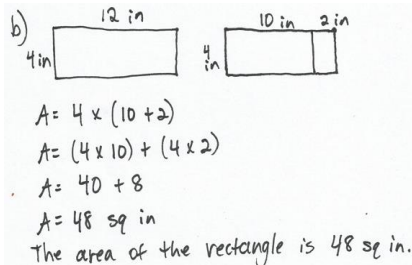 b)
12 in
10 in 2 in
4 in
4 in
A = 4 x (10 + 2)
A = (4 x 10) + (4 x 2)
A = 40 + 8
A = 48 sq in
The area of the rectangle is 48 sq in.